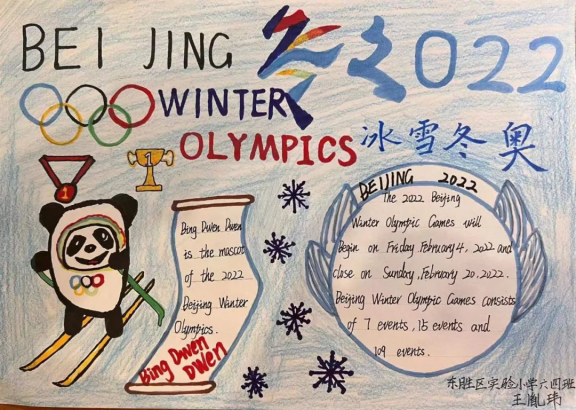 BEI JING
2022
WINTER
OLYMPICS
冰雪冬奥
1
1
Bing Dwen Dwen
is the mascot
of the 2022
Beijing Winter
Olympics.
Bing Dwen
Dwen
BEIJING 2022
The 2022 Beijing
Winter Olympic Games will
Begin on Friday February 4, 2022 and
close on Sunday, February 20, 2022.
Beijing Winter Olympic Games consists
of 7 events, 15 events and
109 events.
东胜区实验小学六四班